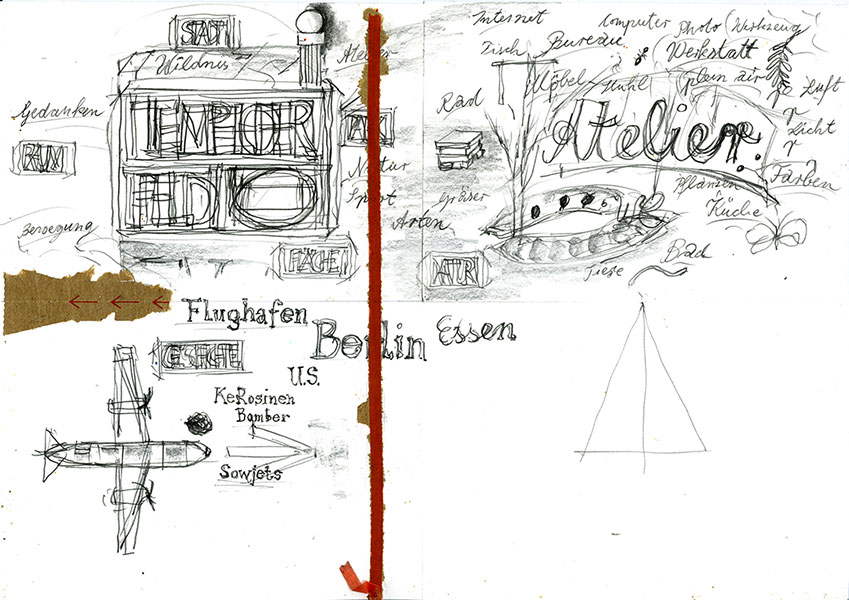 STADT
Wildnis
Gedanken
RAUM
Bewegung
Atelier
Natur
Sport
Arten
FLÄCHE
Internet
Computer
Photo (Werkzeug)
Tisch
Bureau
Werkstatt
Möbel
Stuhl
plein air
Luft
Rad
Atelier
Licht
Farben
Gräser
Pflanzen
Küche
Bad
Flughafen
Berlin
Essen
GESCHICHTE
U.S.
KeRosinen
Bomber
Sowjets